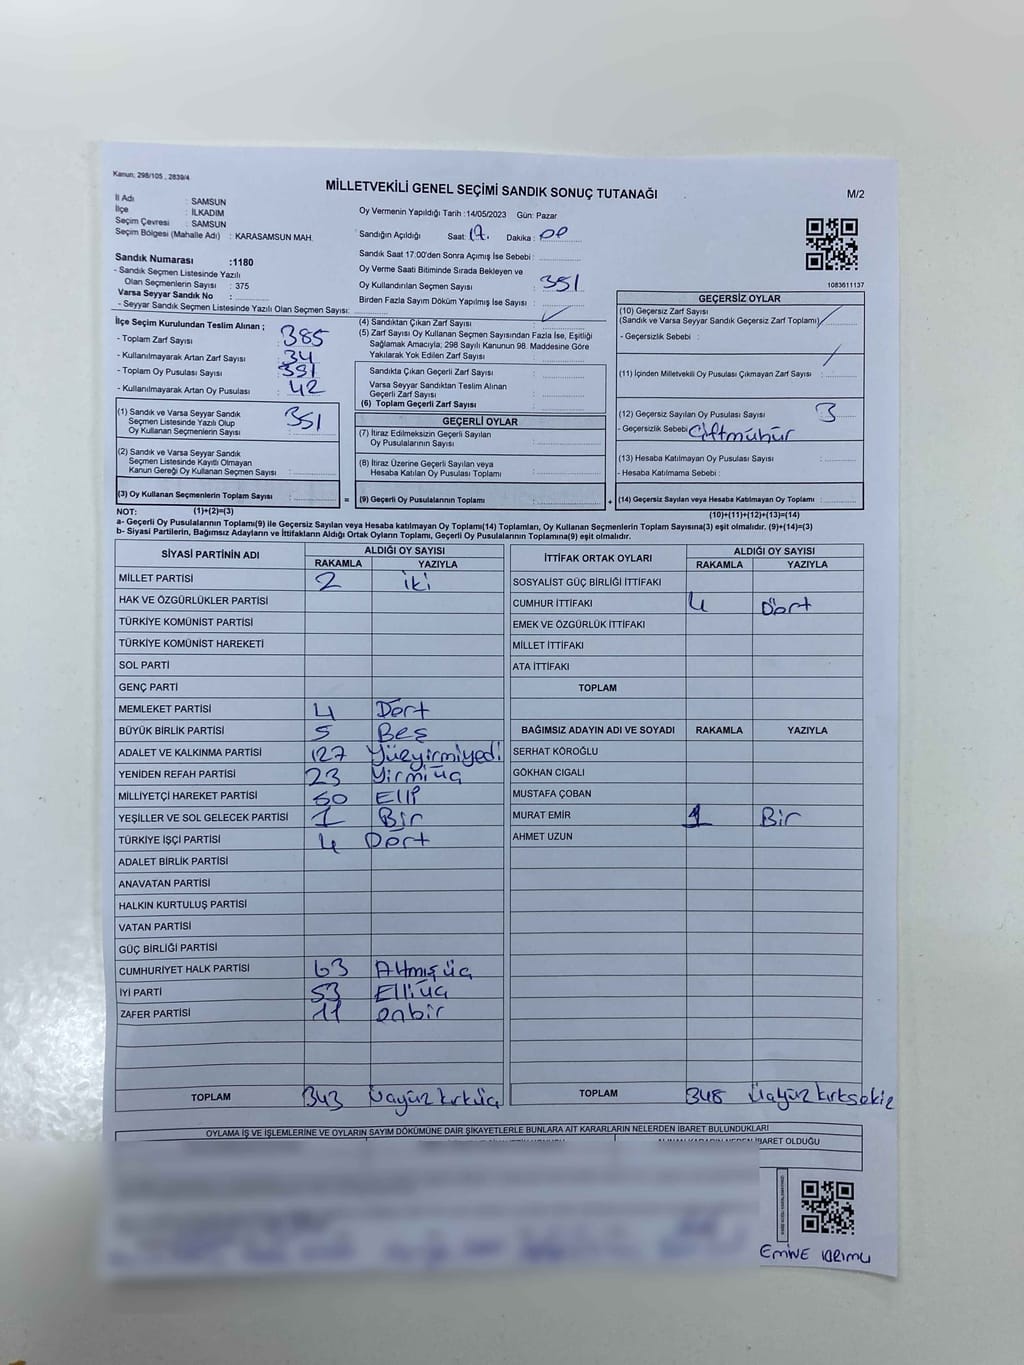 Kanun; 298/105 , 2839/4
MİLLETVEKİLİ GENEL SEÇİMİ SANDIK SONUÇ TUTANAĞI
M/2
İl Adı : SAMSUN
İlçe : İLKADIM
Seçim Çevresi : SAMSUN
Seçim Bölgesi (Mahalle Adı) : KARASAMSUN MAH.
Oy Vermenin Yapıldığı Tarih :14/05/2023 Gün: Pazar
Sandığın Açıldığı Saat: 17. Dakika: 00
Sandık Saat 17:00'den Sonra Açımış İse Sebebi :
Oy Verme Saati Bitiminde Sırada Bekleyen ve
Oy Kullandırılan Seçmen Sayısı : 351
Birden Fazla Sayım Döküm Yapılmış İse Sayısı :
1083611137
Sandık Numarası :1180
- Sandık Seçmen Listesinde Yazılı
Olan Seçmenlerin Sayısı : 375
Varsa Seyyar Sandık No :
- Seyyar Sandık Seçmen Listesinde Yazılı Olan Seçmen Sayısı:
İlçe Seçim Kurulundan Teslim Alınan ;
- Toplam Zarf Sayısı : 385
- Kullanılmayarak Artan Zarf Sayısı : 34
- Toplam Oy Pusulası Sayısı : 391
- Kullanılmayarak Artan Oy Pusulası : 42
(1) Sandık ve Varsa Seyyar Sandık
Seçmen Listesinde Yazılı Olup
Oy Kullanan Seçmenlerin Sayısı : 351
(2) Sandık ve Varsa Seyyar Sandık
Seçmen Listesinde Kayıtlı Olmayan
Kanun Gereği Oy Kullanan Seçmen Sayısı :
(3) Oy Kullanan Seçmenlerin Toplam Sayısı :
(4) Sandıktan Çıkan Zarf Sayısı :
(5) Zarf Sayısı Oy Kullanan Seçmen Sayısından Fazla İse, Eşitliği
Sağlamak Amacıyla; 298 Sayılı Kanunun 98. Maddesine Göre
Yakılarak Yok Edilen Zarf Sayısı :
Sandıkta Çıkan Geçerli Zarf Sayısı :
Varsa Seyyar Sandıktan Teslim Alınan
Geçerli Zarf Sayısı :
(6) Toplam Geçerli Zarf Sayısı :
GEÇERLİ OYLAR
(7) İtiraz Edilmeksizin Geçerli Sayılan
Oy Pusulalarının Sayısı :
(8) İtiraz Üzerine Geçerli Sayılan veya
Hesaba Katılan Oy Pusulası Toplamı :
= (9) Geçerli Oy Pusulalarının Toplamı :
GEÇERSİZ OYLAR
(10) Geçersiz Zarf Sayısı
(Sandık ve Varsa Seyyar Sandık Geçersiz Zarf Toplamı)
- Geçersizlik Sebebi :
(11) İçinden Milletvekili Oy Pusulası Çıkmayan Zarf Sayısı :
(12) Geçersiz Sayılan Oy Pusulası Sayısı : 3
- Geçersizlik Sebebi Çiftmühür
(13) Hesaba Katılmayan Oy Pusulası Sayısı :
- Hesaba Katılmama Sebebi :
+ (14) Geçersiz Sayılan veya Hesaba Katılmayan Oy Toplamı :
NOT: (1)+(2)=(3)
(10)+(11)+(12)+(13)=(14)
a- Geçerli Oy Pusulalarının Toplamı(9) ile Geçersiz Sayılan veya Hesaba katılmayan Oy Toplamı(14) Toplamları, Oy Kullanan Seçmenlerin Toplam Sayısına(3) eşit olmalıdır. (9)+(14)=(3)
b- Siyasi Partilerin, Bağımsız Adayların ve İttifakların Aldığı Ortak Oyların Toplamı, Geçerli Oy Pusulalarının Toplamına(9) eşit olmalıdır.
SİYASİ PARTİNİN ADI ALDIĞI OY SAYISI
RAKAMLA YAZIYLA
MİLLET PARTİSİ 2 iki
HAK VE ÖZGÜRLÜKLER PARTİSİ
TÜRKİYE KOMÜNİST PARTİSİ
TÜRKİYE KOMÜNİST HAREKETİ
SOL PARTİ
GENÇ PARTİ
MEMLEKET PARTİSİ 4 Dört
BÜYÜK BİRLİK PARTİSİ 5 Beş
ADALET VE KALKINMA PARTİSİ 127 Yüzyirmiyedi
YENİDEN REFAH PARTİSİ 23 Yirmiüç
MİLLİYETÇİ HAREKET PARTİSİ 50 Elli
YEŞİLLER VE SOL GELECEK PARTİSİ 1 Bir
TÜRKİYE İŞÇİ PARTİSİ 4 Dört
ADALET BİRLİK PARTİSİ
ANAVATAN PARTİSİ
HALKIN KURTULUŞ PARTİSİ
VATAN PARTİSİ
GÜÇ BİRLİĞİ PARTİSİ
CUMHURİYET HALK PARTİSİ 63 Altmışüç
İYİ PARTİ 53 Elliüç
ZAFER PARTİSİ 11 onbir
TOPLAM 343 üçyüzkırküç
İTTİFAK ORTAK OYLARI ALDIĞI OY SAYISI
RAKAMLA YAZIYLA
SOSYALİST GÜÇ BİRLİĞİ İTTİFAKI
CUMHUR İTTİFAKI 4 Dört
EMEK VE ÖZGÜRLÜK İTTİFAKI
MİLLET İTTİFAKI
ATA İTTİFAKI
TOPLAM
BAĞIMSIZ ADAYIN ADI VE SOYADI RAKAMLA YAZIYLA
SERHAT KÖROĞLU
GÖKHAN CIGALI
MUSTAFA ÇOBAN
MURAT EMİR 1 Bir
AHMET UZUN
TOPLAM 348 üçyüzkırksekiz
OYLAMA İŞ VE İŞLEMLERİNE VE OYLARIN SAYIM DÖKÜMÜNE DAİR ŞİKAYETLERLE BUNLARA AİT KARARLARIN NELERDEN İBARET BULUNDUKLARI
İBARET OLDUĞU
EMİNE